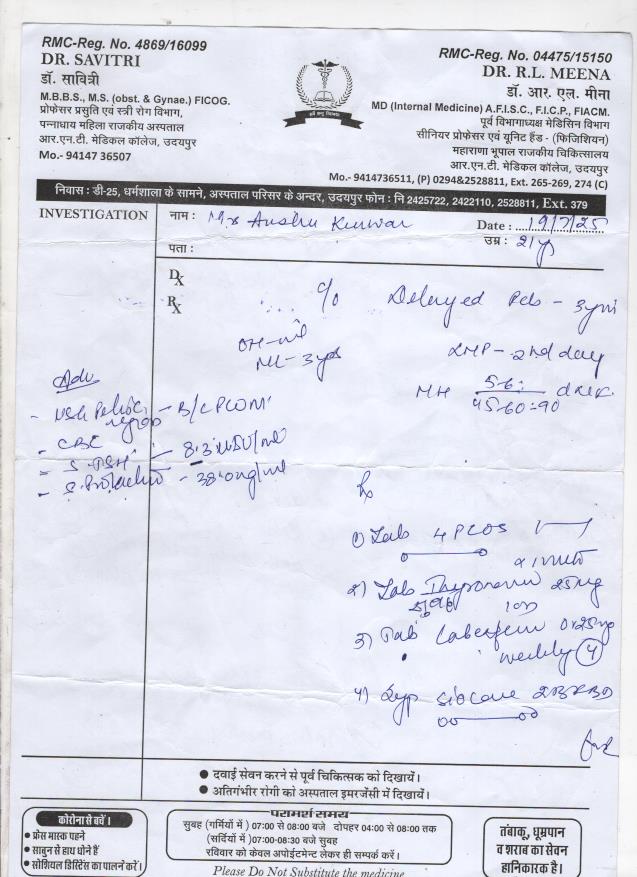 RMC-Reg. No. 4869/16099
DR. SAVITRI
डॉ. सावित्री
M.B.B.S., M.S. (obst. & Gynae.) FICOG.
प्रोफेसर प्रसुति एवं स्त्री रोग विभाग,
पन्नाधाय महिला राजकीय अस्पताल
आर.एन.टी. मेडिकल कॉलेज, उदयपुर
Mo.- 94147 36507
RMC-Reg. No. 04475/15150
DR. R.L. MEENA
डॉ. आर. एल. मीना
MD (Internal Medicine) A.F.I.S.C., F.I.C.P., FIACM.
पूर्व विभागाध्यक्ष मेडिसिन विभाग
सीनियर प्रोफेसर एवं यूनिट हैड - (फिजिशियन)
महाराणा भूपाल राजकीय चिकित्सालय
आर.एन.टी. मेडिकल कॉलेज, उदयपुर
Mo.- 9414736511, (P) 0294&2528811, Ext. 265-269, 274 (C)
निवास : डी-25, धर्मशाला के सामने, अस्पताल परिसर के अन्दर, उदयपुर फोन : नि 2425722, 2422110, 2528811, Ext. 379
INVESTIGATION
नाम : Mrs Anshu Kunwar
Date : 19/7/25
पता :
उम्र : 21y
Dx
Rx
c/o Delayed
OH-nil
ML-3yrs
LMP-2nd day
MH 5-6
45-60-90
Adv
- USG Pelvic - B/L PCOM
- CBC
- S. TSH - 8.3
- S. Prolactin - 38.0ng/ml
Rx
1) Tab 4 PCOS
x 1 month
2) Tab Thyronorm 25mg
3) Tab 0.25mg
weekly 4
4) Syp
● दवाई सेवन करने से पूर्व चिकित्सक को दिखायें।
● अतिगंभीर रोगी को अस्पताल इमरजेंसी में दिखायें।
कोरोना से बचें।
● फ्रेस मास्क पहने
● साबुन से हाथ धोने हैं
● सोशियल डिस्टिंस का पालन करें।
परामर्श समय
सुबह (गर्मियों में ) 07:00 से 08:00 बजे दोपहर 04:00 से 08:00 तक
(सर्दियों में ) 07:00-08:30 बजे सुबह
रविवार को केवल अपोईटमेन्ट लेकर ही सम्पर्क करें।
Please Do Not Substitute the medicine
तंबाकू, धूम्रपान
व शराब का सेवन
हानिकारक है।